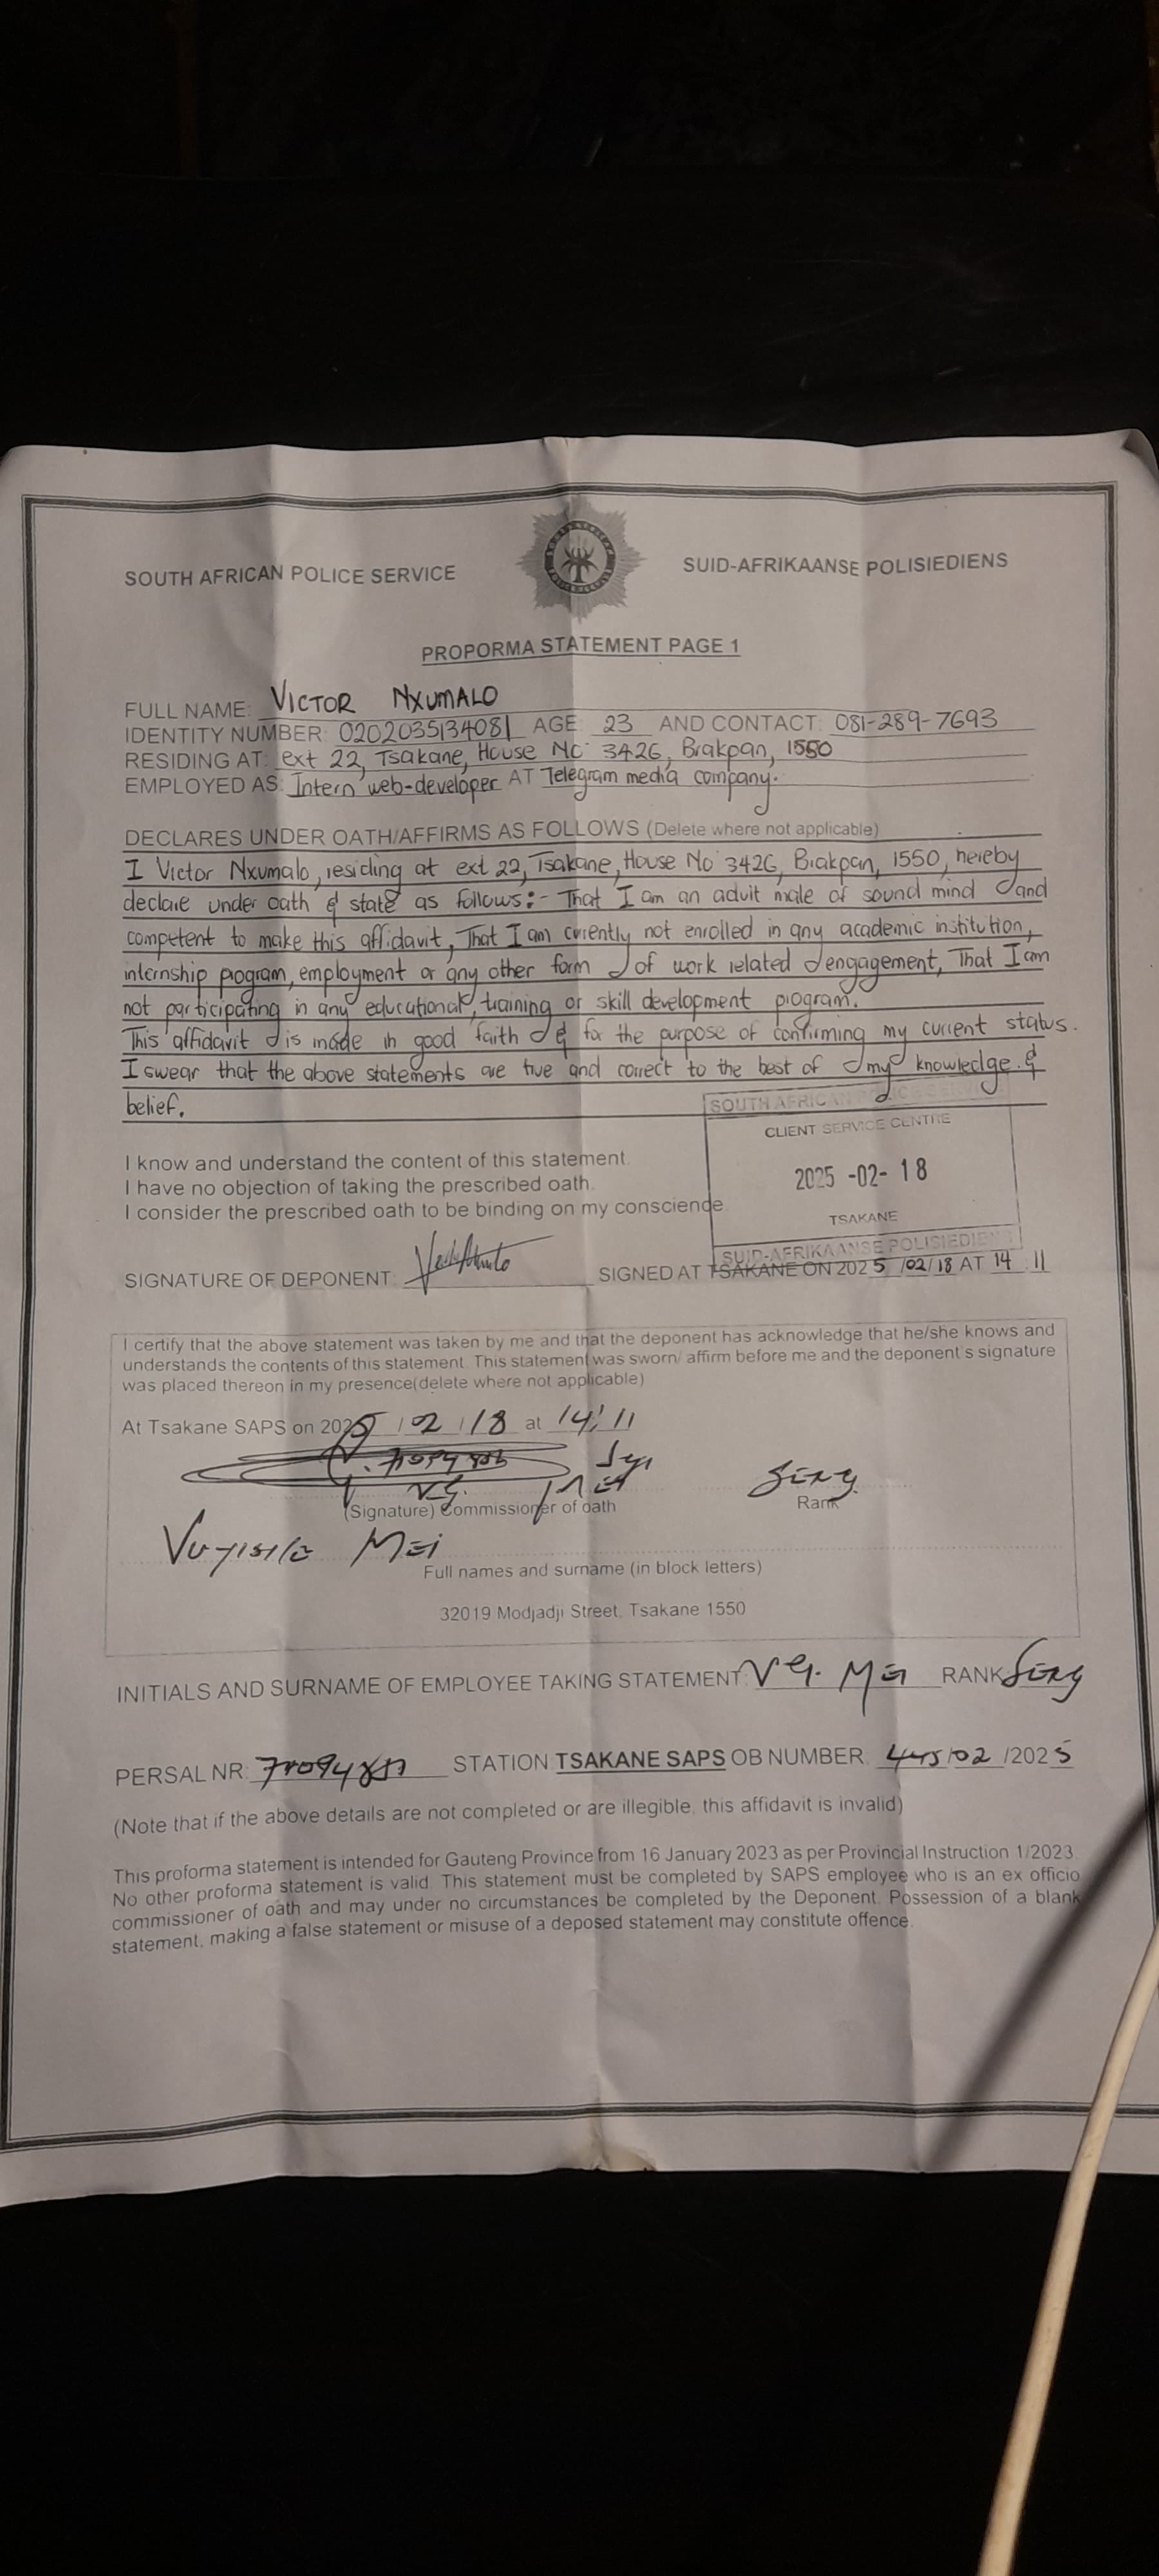 SOUTH AFRICAN POLICE SERVICE SUID-AFRIKAANSE POLISIEDIENS
PROPORMA STATEMENT PAGE 1
FULL NAME: VICTOR NXUMALO
IDENTITY NUMBER: 0202035134081 AGE: 23 AND CONTACT: 081-289-7693
RESIDING AT: ext 22, Tsakane, House No 3426, Brakpan, 1550
EMPLOYED AS: Intern web-developer AT Telegram media company.
DECLARES UNDER OATH/AFFIRMS AS FOLLOWS (Delete where not applicable)
I Victor Nxumalo, residing at ext 22, Tsakane, House No 3426, Brakpan, 1550, hereby
declare under oath & state as follows:- That I am an adult male of sound mind and
competent to make this affidavit, That I am curently not enrolled in any academic institution,
internship program, employment or any other form of work related engagement, That I am
not participating in any educational, training or skill development program.
This affidavit is made in good faith & for the purpose of confirming my current status.
I swear that the above statements are true and correct to the best of my knowledge &
belief.
SOUTH AFRICAN POLICE SERVICE
CLIENT SERVICE CENTRE
2025 -02- 18
TSAKANE
SUID-AFRIKAANSE POLISIEDIENS
I know and understand the content of this statement.
I have no objection of taking the prescribed oath.
I consider the prescribed oath to be binding on my consciende.
SIGNATURE OF DEPONENT: SIGNED AT TSAKANE ON 2025 /02/18 AT 14:11
I certify that the above statement was taken by me and that the deponent has acknowledge that he/she knows and
understands the contents of this statement. This statement was sworn/ affirm before me and the deponent's signature
was placed thereon in my presence(delete where not applicable)
At Tsakane SAPS on 2025 / 02 / 18 at 14:11
(Signature) Commissioner of oath Rank
Full names and surname (in block letters)
32019 Modjadji Street, Tsakane 1550
INITIALS AND SURNAME OF EMPLOYEE TAKING STATEMENT: RANK
PERSAL NR: STATION TSAKANE SAPS OB NUMBER: 445/02 /2025
(Note that if the above details are not completed or are illegible, this affidavit is invalid)
This proforma statement is intended for Gauteng Province from 16 January 2023 as per Provincial Instruction 1/2023.
No other proforma statement is valid. This statement must be completed by SAPS employee who is an ex officio
commissioner of oath and may under no circumstances be completed by the Deponent. Possession of a blank
statement, making a false statement or misuse of a deposed statement may constitute offence.